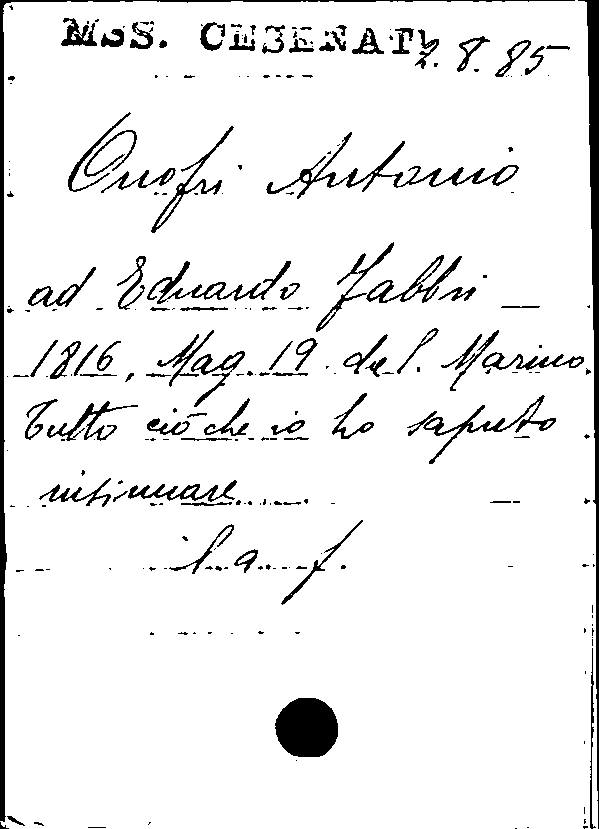 MSS. CESENATI 2. 8. 85
Onofri Antonio
ad Eduardo Fabbri —
1816, Mag. 19. da S. Marino.
Tutto ciò che io ho saputo
insinuare....... —
l. a. f.